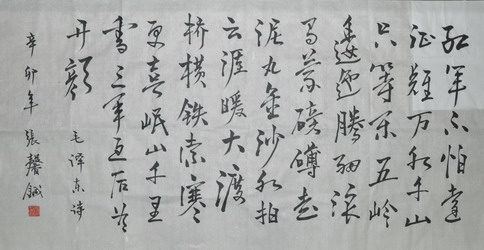 红军不怕远
征难万水千山
只等闲五岭
逶迤腾细浪
乌蒙磅礴走
泥丸金沙水拍
云涯暖大渡
桥横铁索寒
更喜岷山千里
雪三军过后尽
开颜
毛泽东诗
辛卯年张馨